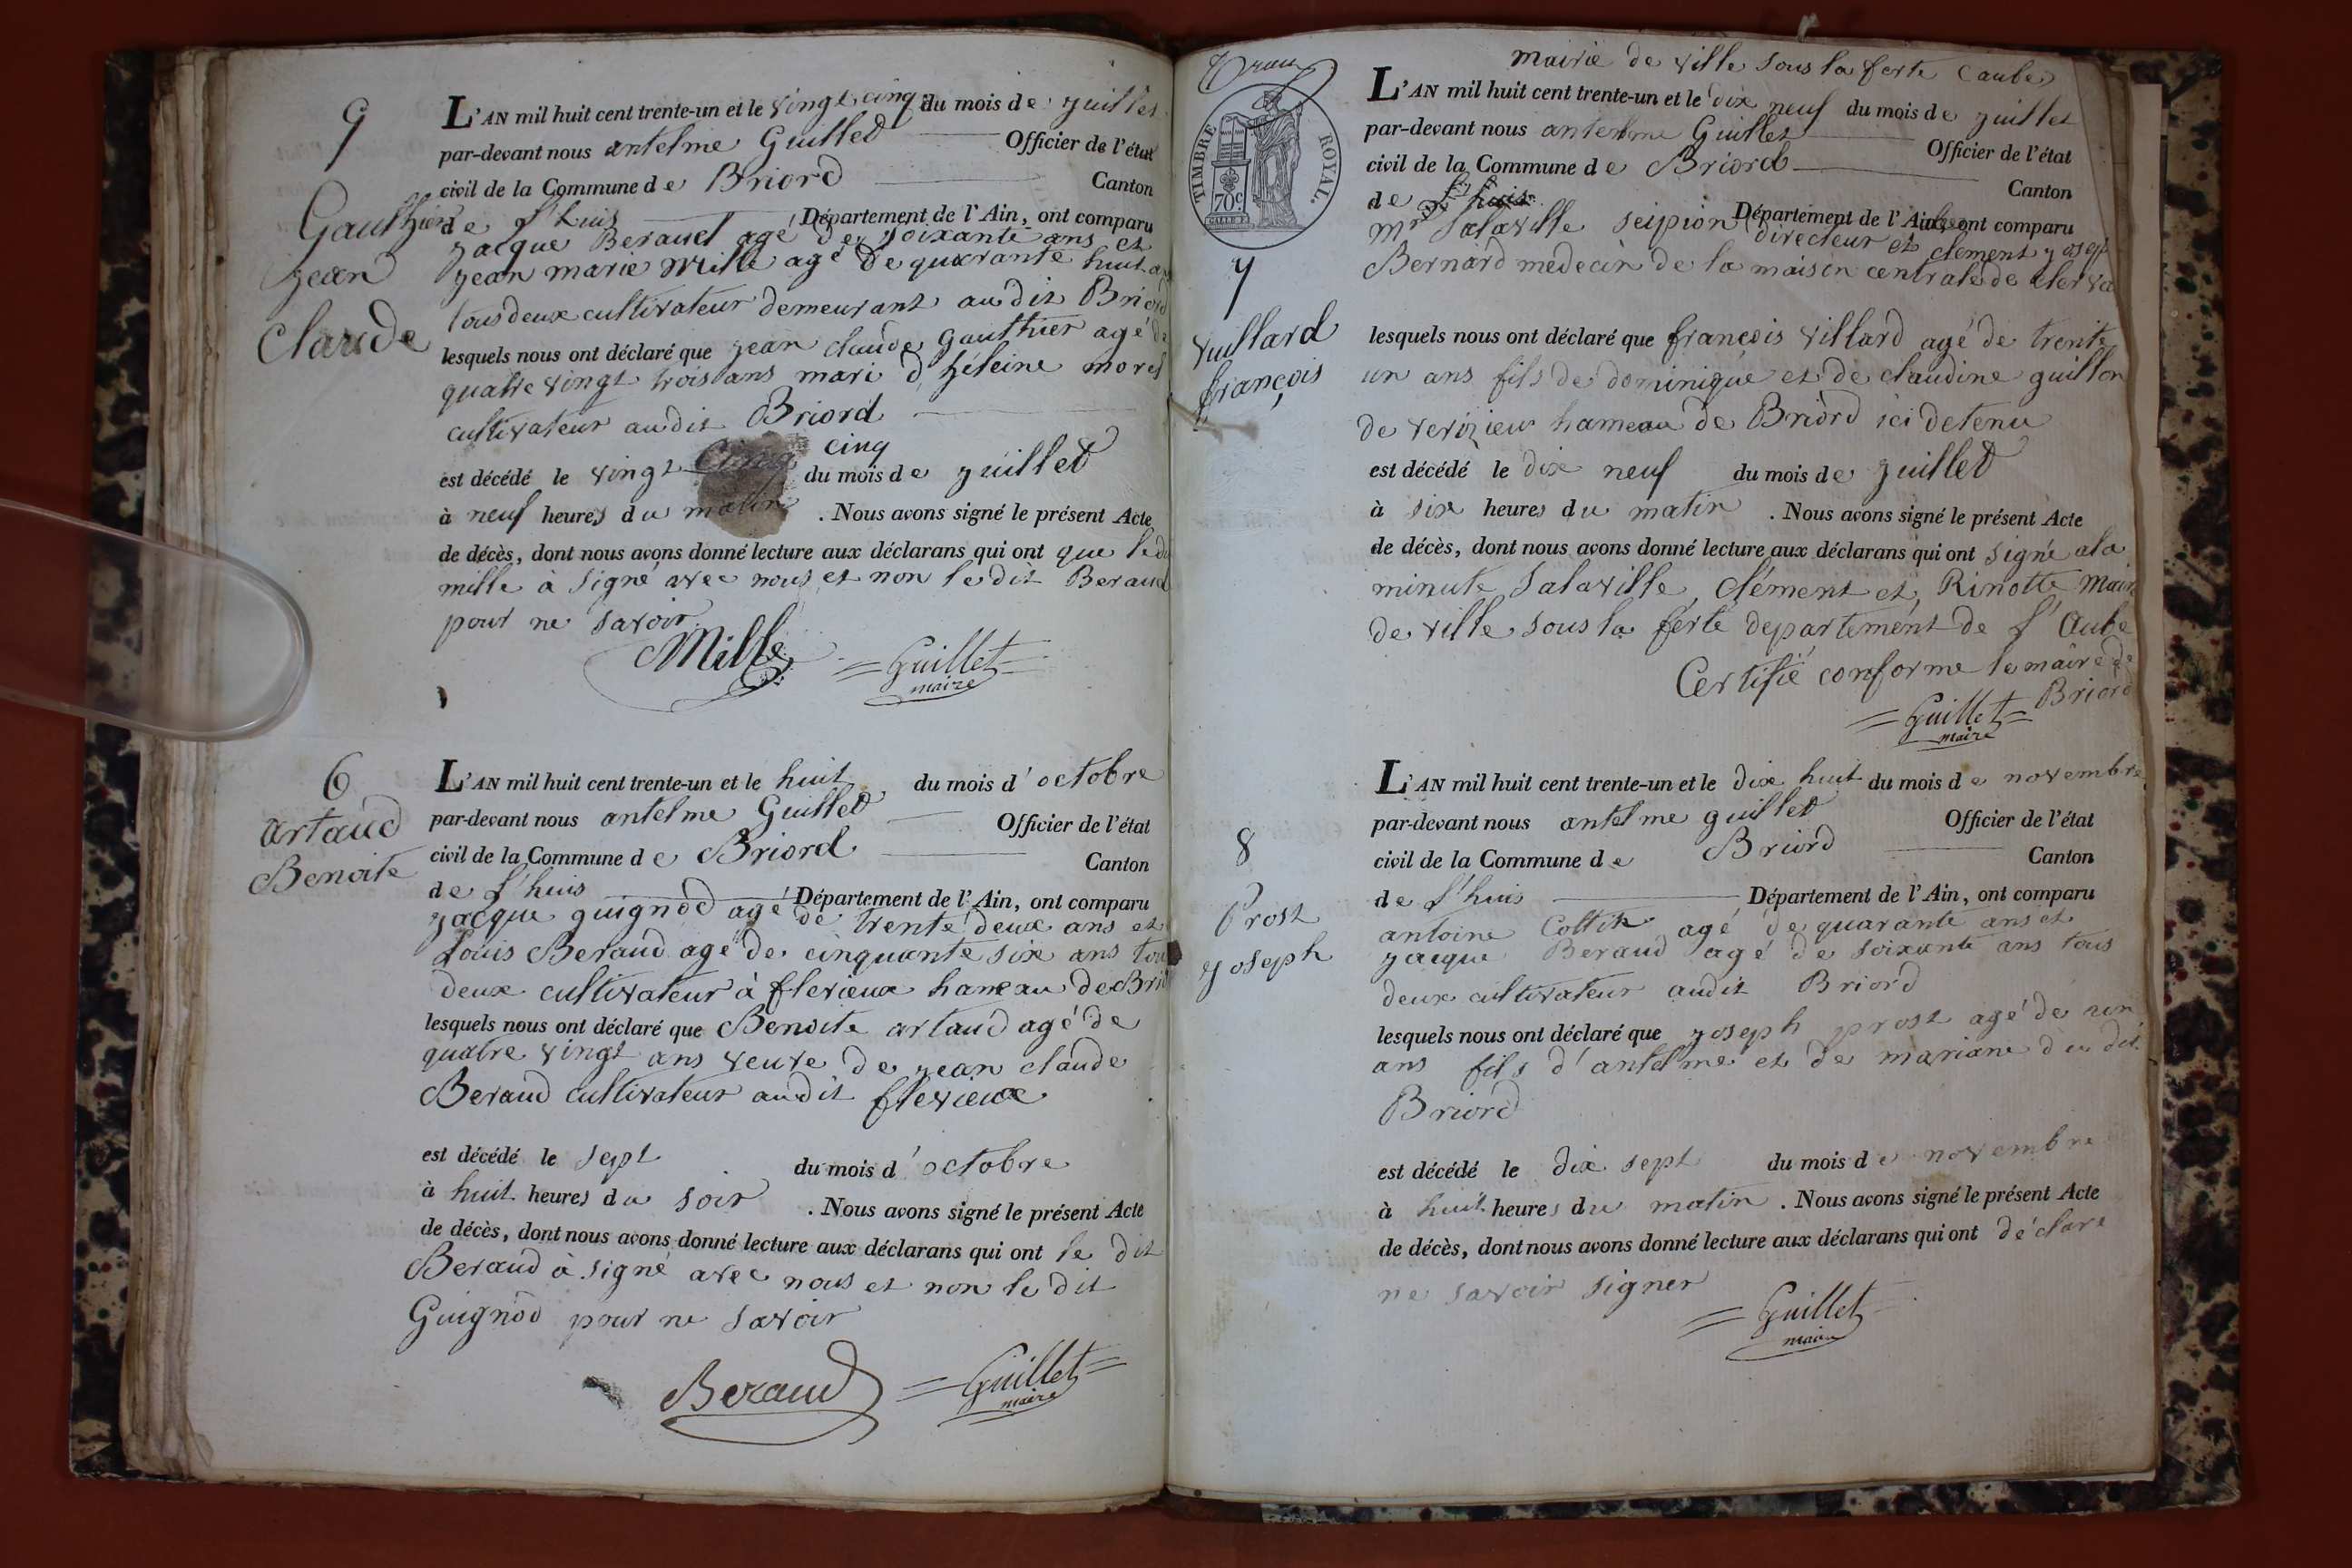 9
Gauthier
jean
Claude
L'AN mil huit cent trente-un et le vingt cinq du mois de juillet
par-devant nous antelme Guillet Officier de l'état
civil de la Commune de Briord Canton
de L'huis Département de l'Ain, ont comparu
jacque Beraud agé de soixante ans et
jean marie Mille agé de quarante huit ans
tous deux cultivateur demeurant audit Briord
lesquels nous ont déclaré que jean claude gauthier agé de
quatre vingt trois ans mari d'héleine morel
cultivateur audit Briord
cinq
est décédé le vingt cinq du mois de juillet
à neuf heures du matin . Nous avons signé le présent Acte
de décès, dont nous avons donné lecture aux déclarans qui ont que ledit
mille à signé avec nous et non le dit Beraud
pour ne savoir
Mille Guillet
maire
6
artaud
Benoite
L'AN mil huit cent trente-un et le huit du mois d'octobre
par-devant nous antelme Guillet Officier de l'état
civil de la Commune de Briord Canton
de L'huis Département de l'Ain, ont comparu
jacque guignod agé de trente deux ans et
Louis Beraud agé de cinquante six ans tous
deux cultivateur à flevieux hameau de Briord
lesquels nous ont déclaré que Benoite artaud agé de
quatre vingt ans veuve de jean claude
Beraud cultivateur audit flevieux
est décédé le sept du mois d'octobre
à huit heures du soir . Nous avons signé le présent Acte
de décès, dont nous avons donné lecture aux déclarans qui ont le dit
Beraud à signé avec nous et non le dit
Guignod pour ne savoir
Beraud Guillet
maire
TIMBRE ROYAL.
70c
7
Vuillard
françois
mairie de ville sous la ferte (aube)
L'AN mil huit cent trente-un et le dix neuf du mois de juillet
par-devant nous antelme Guillet Officier de l'état
civil de la Commune de Briord Canton
de L'huis Département de l'Ain, ont comparu
Mr Salaville Scipion directeur et clement joseph
Bernard medecin de la maison centrale de Clerva
lesquels nous ont déclaré que françois villard agé de trente
un ans fils de dominique et de claudine guillon
de verizieu hameau de Briord ici detenu
est décédé le dix neuf du mois de juillet
à six heures du matin . Nous avons signé le présent Acte
de décès, dont nous avons donné lecture aux déclarans qui ont signé a la
minute Salaville, Clément et Rinotte Maire
de ville sous la ferté departement de l'Aube
Certifié conforme le maire de
Briord
Guillet
maire
8
Prost
joseph
L'AN mil huit cent trente-un et le dix huit du mois de novembre
par-devant nous antelme guillet Officier de l'état
civil de la Commune de Briord Canton
de L'huis Département de l'Ain, ont comparu
antoine agé de quarante ans et
jacque Beraud agé de soixante ans tous
deux cultivateur audit Briord
lesquels nous ont déclaré que joseph prost agé de un
ans fils d'antelme et de mariane du dit
Briord
est décédé le dix sept du mois de novembre
à huit heures du matin . Nous avons signé le présent Acte
de décès, dont nous avons donné lecture aux déclarans qui ont déclaré
ne savoir signer
Guillet
maire